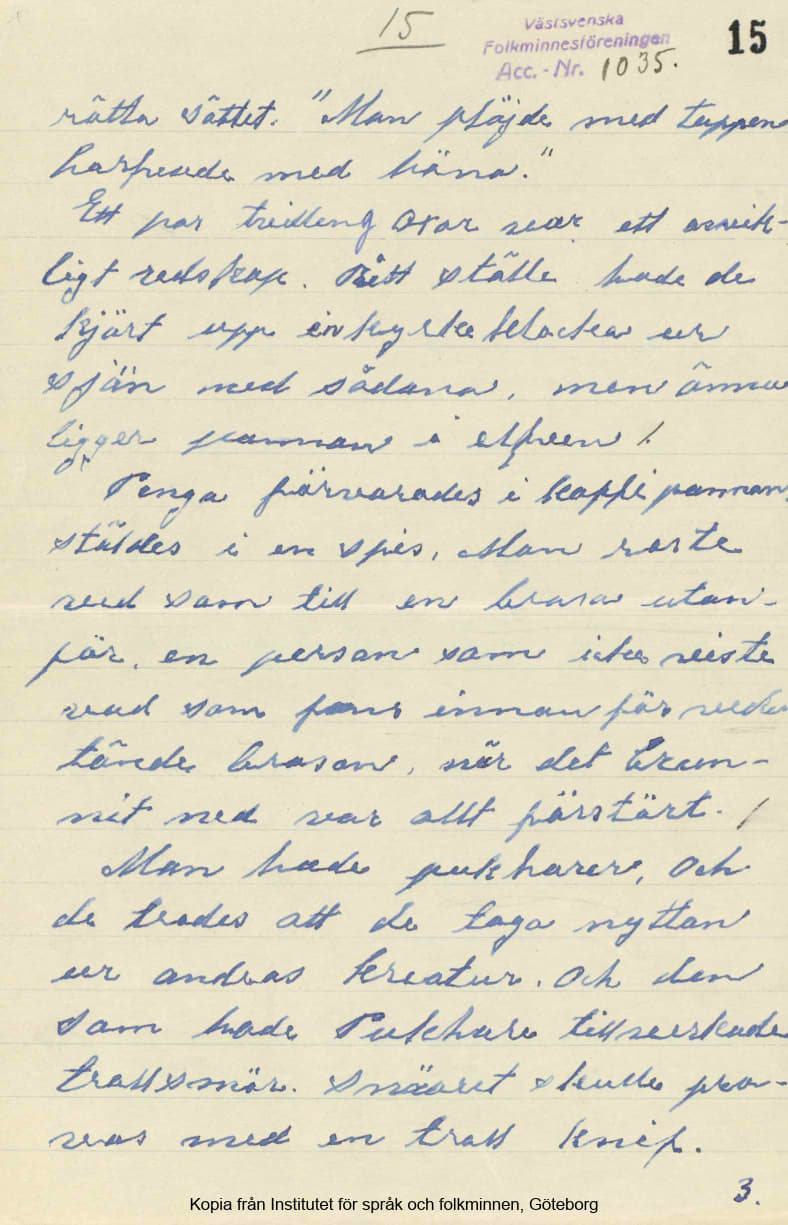 15
Västsvenska
Folkminnesföreningen
Acc.-Nr. 1035.
15
rätta sättet. "Man plöjde med tuppen
harfvade med höna."
Ett par tvilling oxar var ett
ligt redskap. ställe hade de
kjört upp en kyrko klocka ur
sjön med sådana, men ännu
ligger pannan i elfven /.
Penga förvarades i kaffi pannan,
stäldes i en spis, Man
ved som till en brasa utan-
för, en person som icke viste
vad som fans innan för veden
tände brasan, när det brun-
nit ned var allt förstört. /
Man hade pukharer, och
de trodes att de toga nyttan
ur andras kreatur. Och den
som hade Pukhare tillverkade
trollsmör. Smöret skulle pro-
vas med en troll knif.
3.
Kopia från Institutet för språk och folkminnen, Göteborg